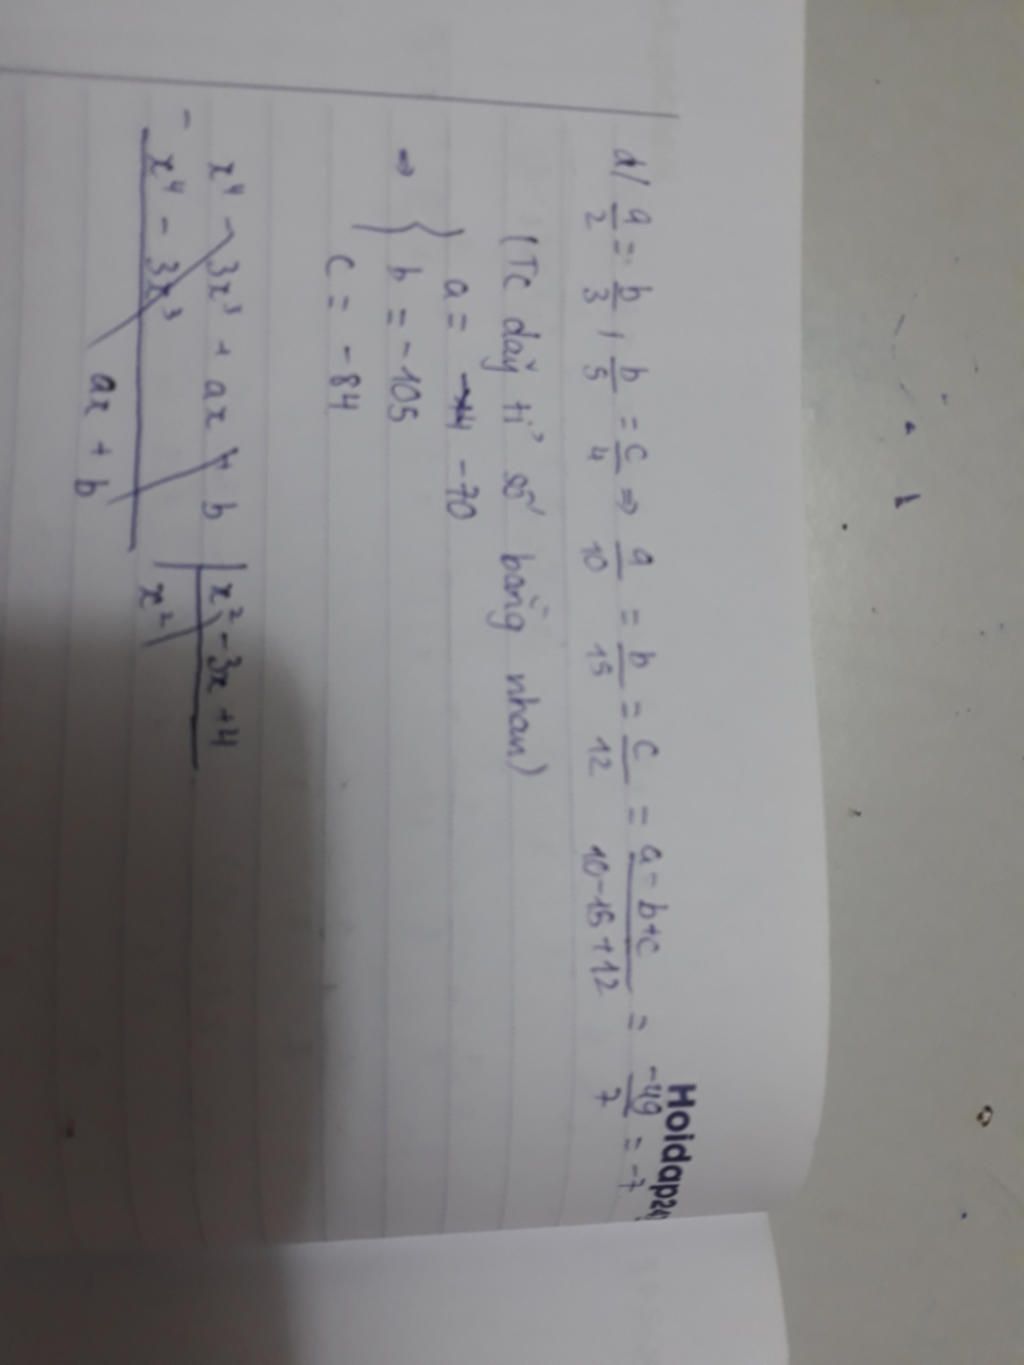 d/ a/2 = b/3, b/5 = c/4 ⇒ a/10 = b/15 = c/12 = (a-b+c)/(10-15+12) = -49/7 = -7
(Tc dãy tỉ số bằng nhau)
a = -70
⇒ { b = -105
c = -84
x⁴ - 3x³ + ax + b | x² - 3x + 4
- x⁴ - 3x³ | x²
ax + b
Hoidap24